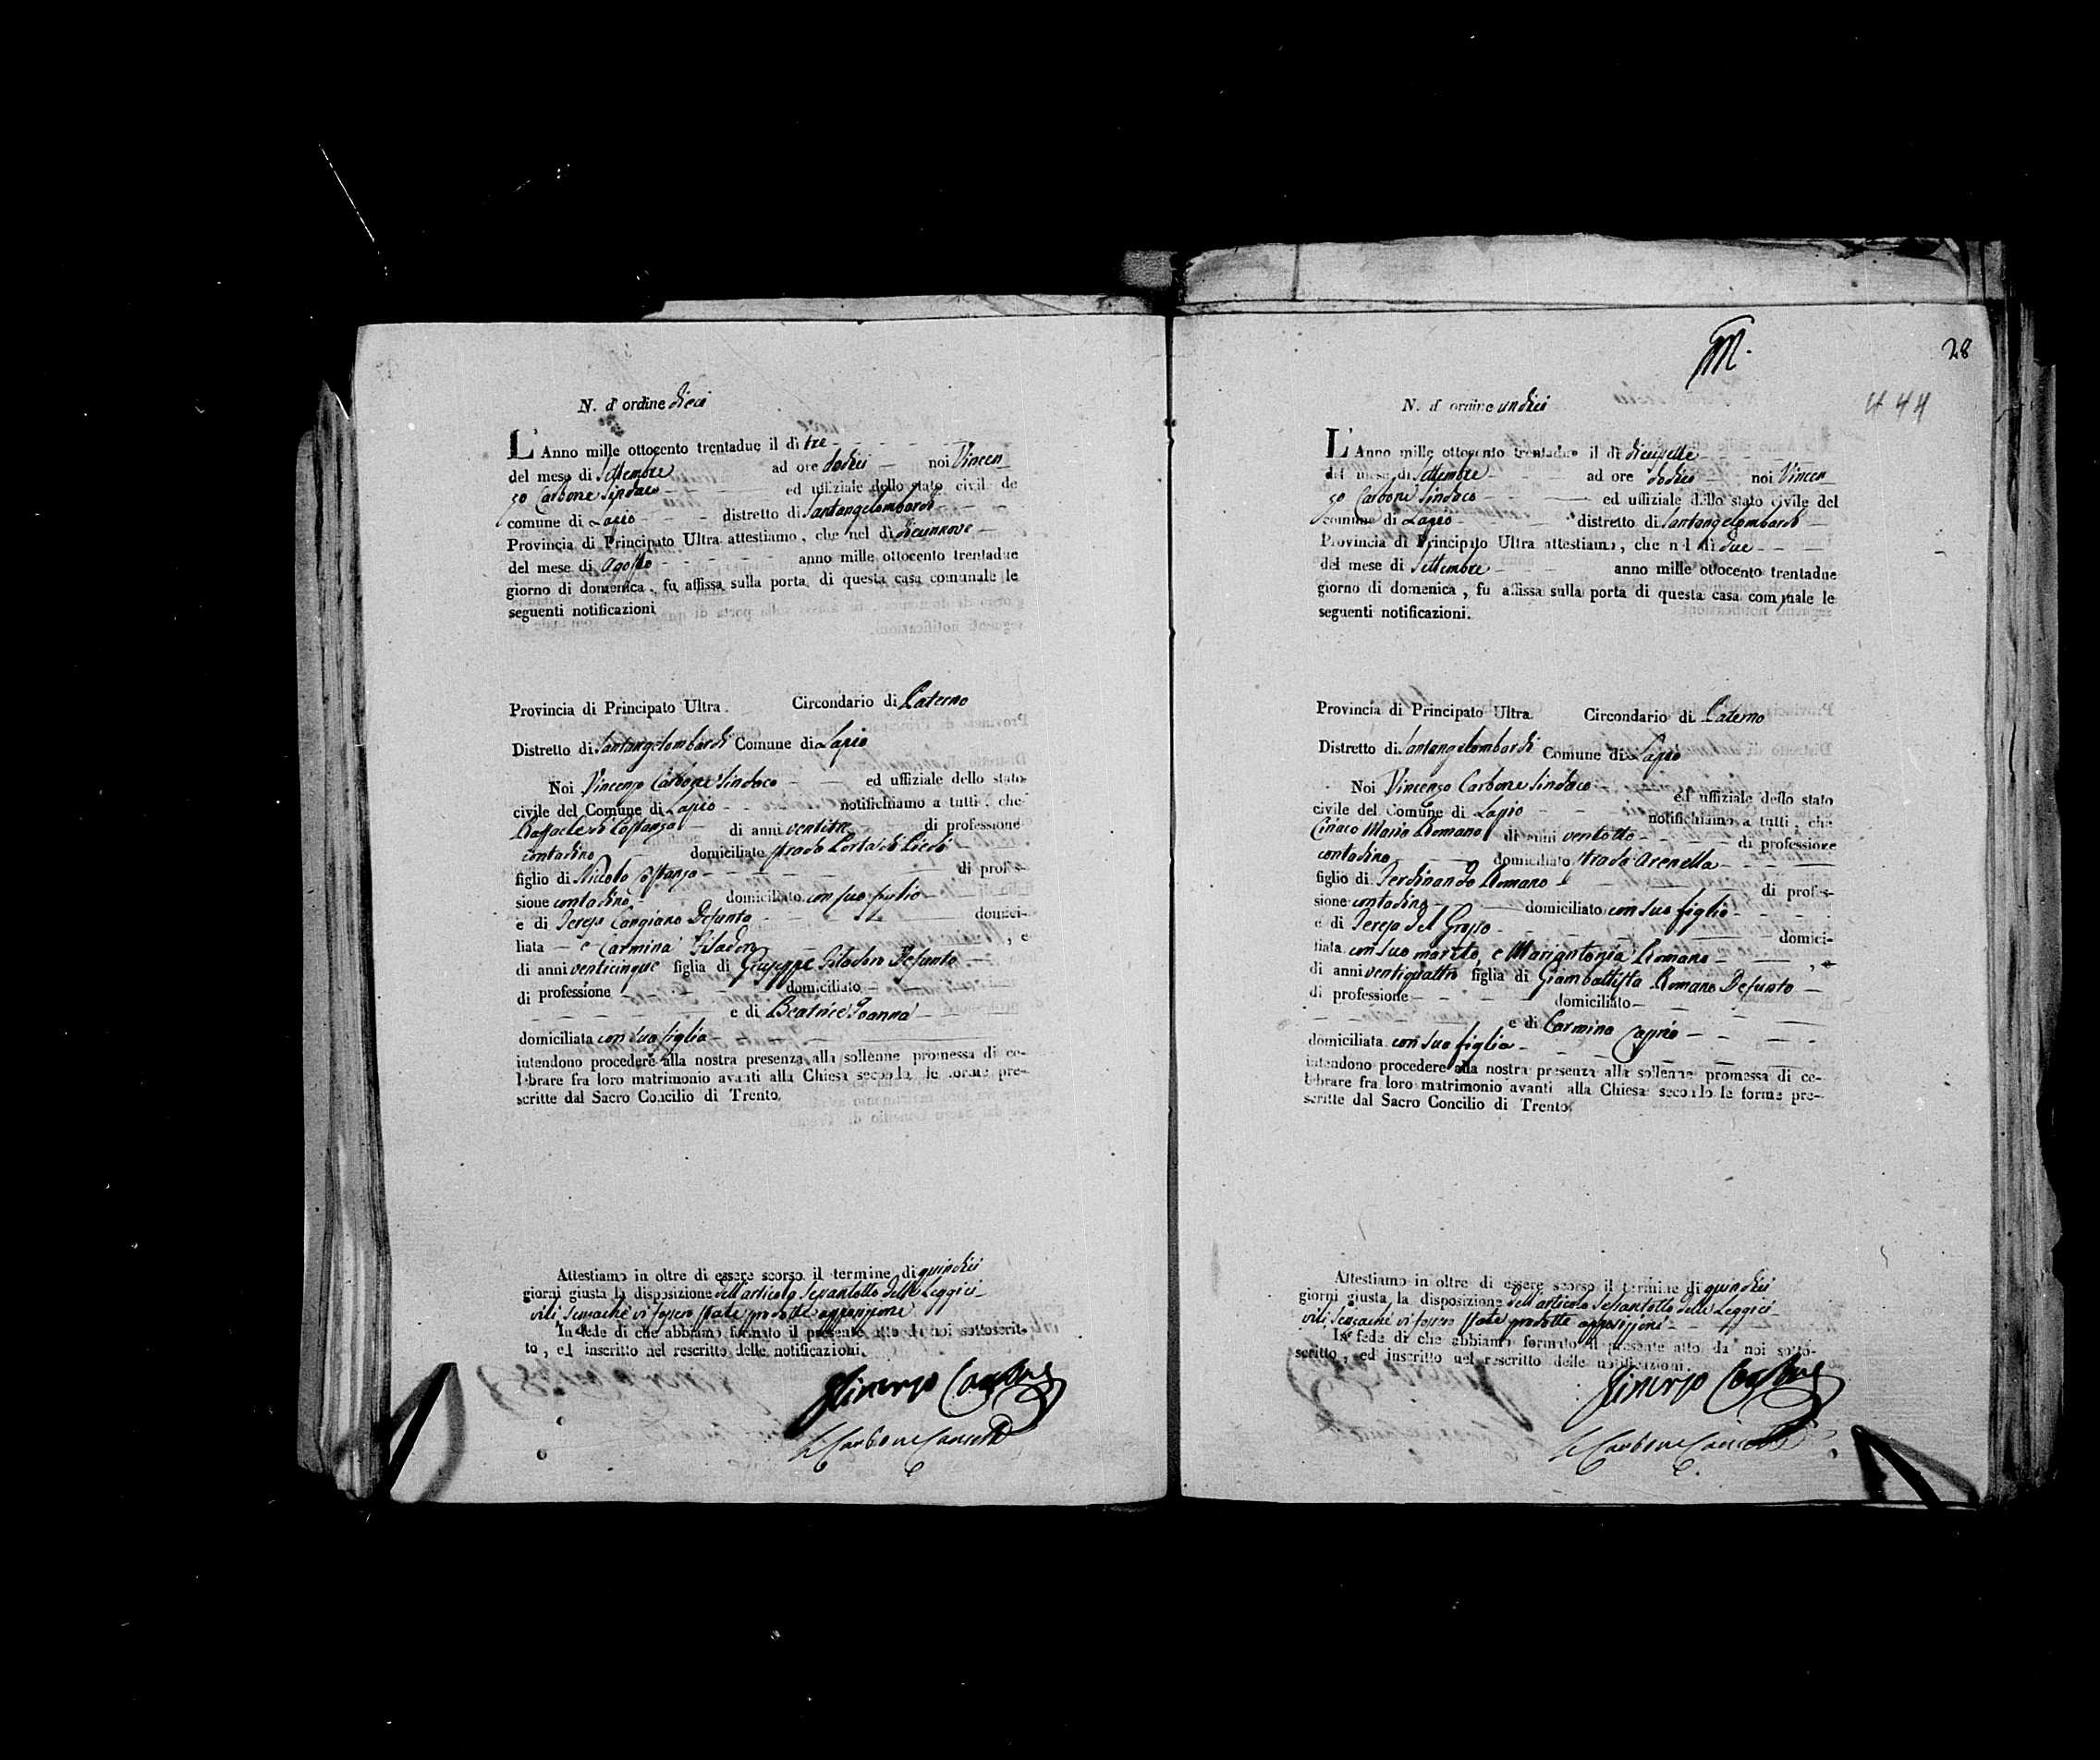 N. d' ordine dieci
L' Anno mille ottocento trentadue il dì tre
del mese di Settembre ad ore dodici noi Vincen
zo Carbone Sindaco ed uffiziale dello stato civil de
comune di Lapio distretto di Santangelombardi
Provincia di Principato Ultra attestiamo, che nel dì diciannove
del mese di Agosto anno mille ottocento trentadue
giorno di domenica, fu affissa sulla porta di questa casa comunale le
seguenti notificazioni
Provincia di Principato Ultra. Circondario di Paterno
Distretto di Santangelombardi Comune di Lapio
Noi Vincenzo Carbone Sindaco ed uffiziale dello stato
civile del Comune di Lapio notifichiamo a tutti, che
Raffaele di Costanzo di anni ventitre di professione
contadino domiciliato strada Porta di Piedi
figlio di Niccolo Costanzo di profes-
sione contadino domiciliato con suo figlio
e di Teresa Cangiano Defunta domici-
liata e Carmina Filadoro, e
di anni venticinque figlia di Giuseppe Filadoro Defunto
di professione domiciliato
e di Beatrice Joanna
domiciliata con sua figlia
intendono procedere alla nostra presenza alla sollenne promessa di ce-
lebrare fra loro matrimonio avanti alla Chiesa secondo le forme pre-
scritte dal Sacro Concilio di Trento.
Attestiamo in oltre di essere scorso il termine di quindici
giorni giusta la disposizione dell'articolo Sessantotto delle Leggi ci
vili senzache vi fossero state prodotte opposizione
In fede di che abbiamo formato il presente atto da noi sottoscrit-
to, ed inscritto nel rescritto delle notificazioni.
Vincenzo Carbone
Carbone Cancell
28
444
N. d' ordine undici
L' Anno mille ottocento trentadue il dì diciasette
del mese di Settembre ad ore dodici noi Vincen
zo Carbone Sindaco ed uffiziale dello stato civile del
comune di Lapio distretto di Santangelombardi
Provincia di Principato Ultra attestiamo, che nel dì due
del mese di Settembre anno mille ottocento trentadue
giorno di domenica, fu affissa sulla porta di questa casa comunale le
seguenti notificazioni.
Provincia di Principato Ultra. Circondario di Paterno
Distretto di Santangelombardi Comune di Lapio
Noi Vincenzo Carbone Sindaco ed uffiziale dello stato
civile del Comune di Lapio notifichiamo a tutti, che
Ciriaco Maria Romano di anni ventotto di professione
contadino domiciliato strada Arenella
figlio di Ferdinando Romano di profes-
sione contadino domiciliato con suo figlio
e di Teresa del Grosso domici-
liata con suo marito, e Mariantonia Romano, e
di anni ventiquattro figlia di Giambattista Romano Defunto
di professione domiciliato
e di Carmina Caprio
domiciliata con sua figlia
intendono procedere alla nostra presenza alla sollenne promessa di ce-
lebrare fra loro matrimonio avanti alla Chiesa secondo le forme pre-
scritte dal Sacro Concilio di Trento.
Attestiamo in oltre di essere scorso il termine di quindici
giorni giusta la disposizione dell'articolo Sessantotto delle Leggi ci
vili senzache vi fossero state prodotte opposizioni
In fede di che abbiamo formato il presente atto da noi sotto-
scritto, ed inscritto nel rescritto delle notificazioni.
Vincenzo Carbone
Carbone Cancell